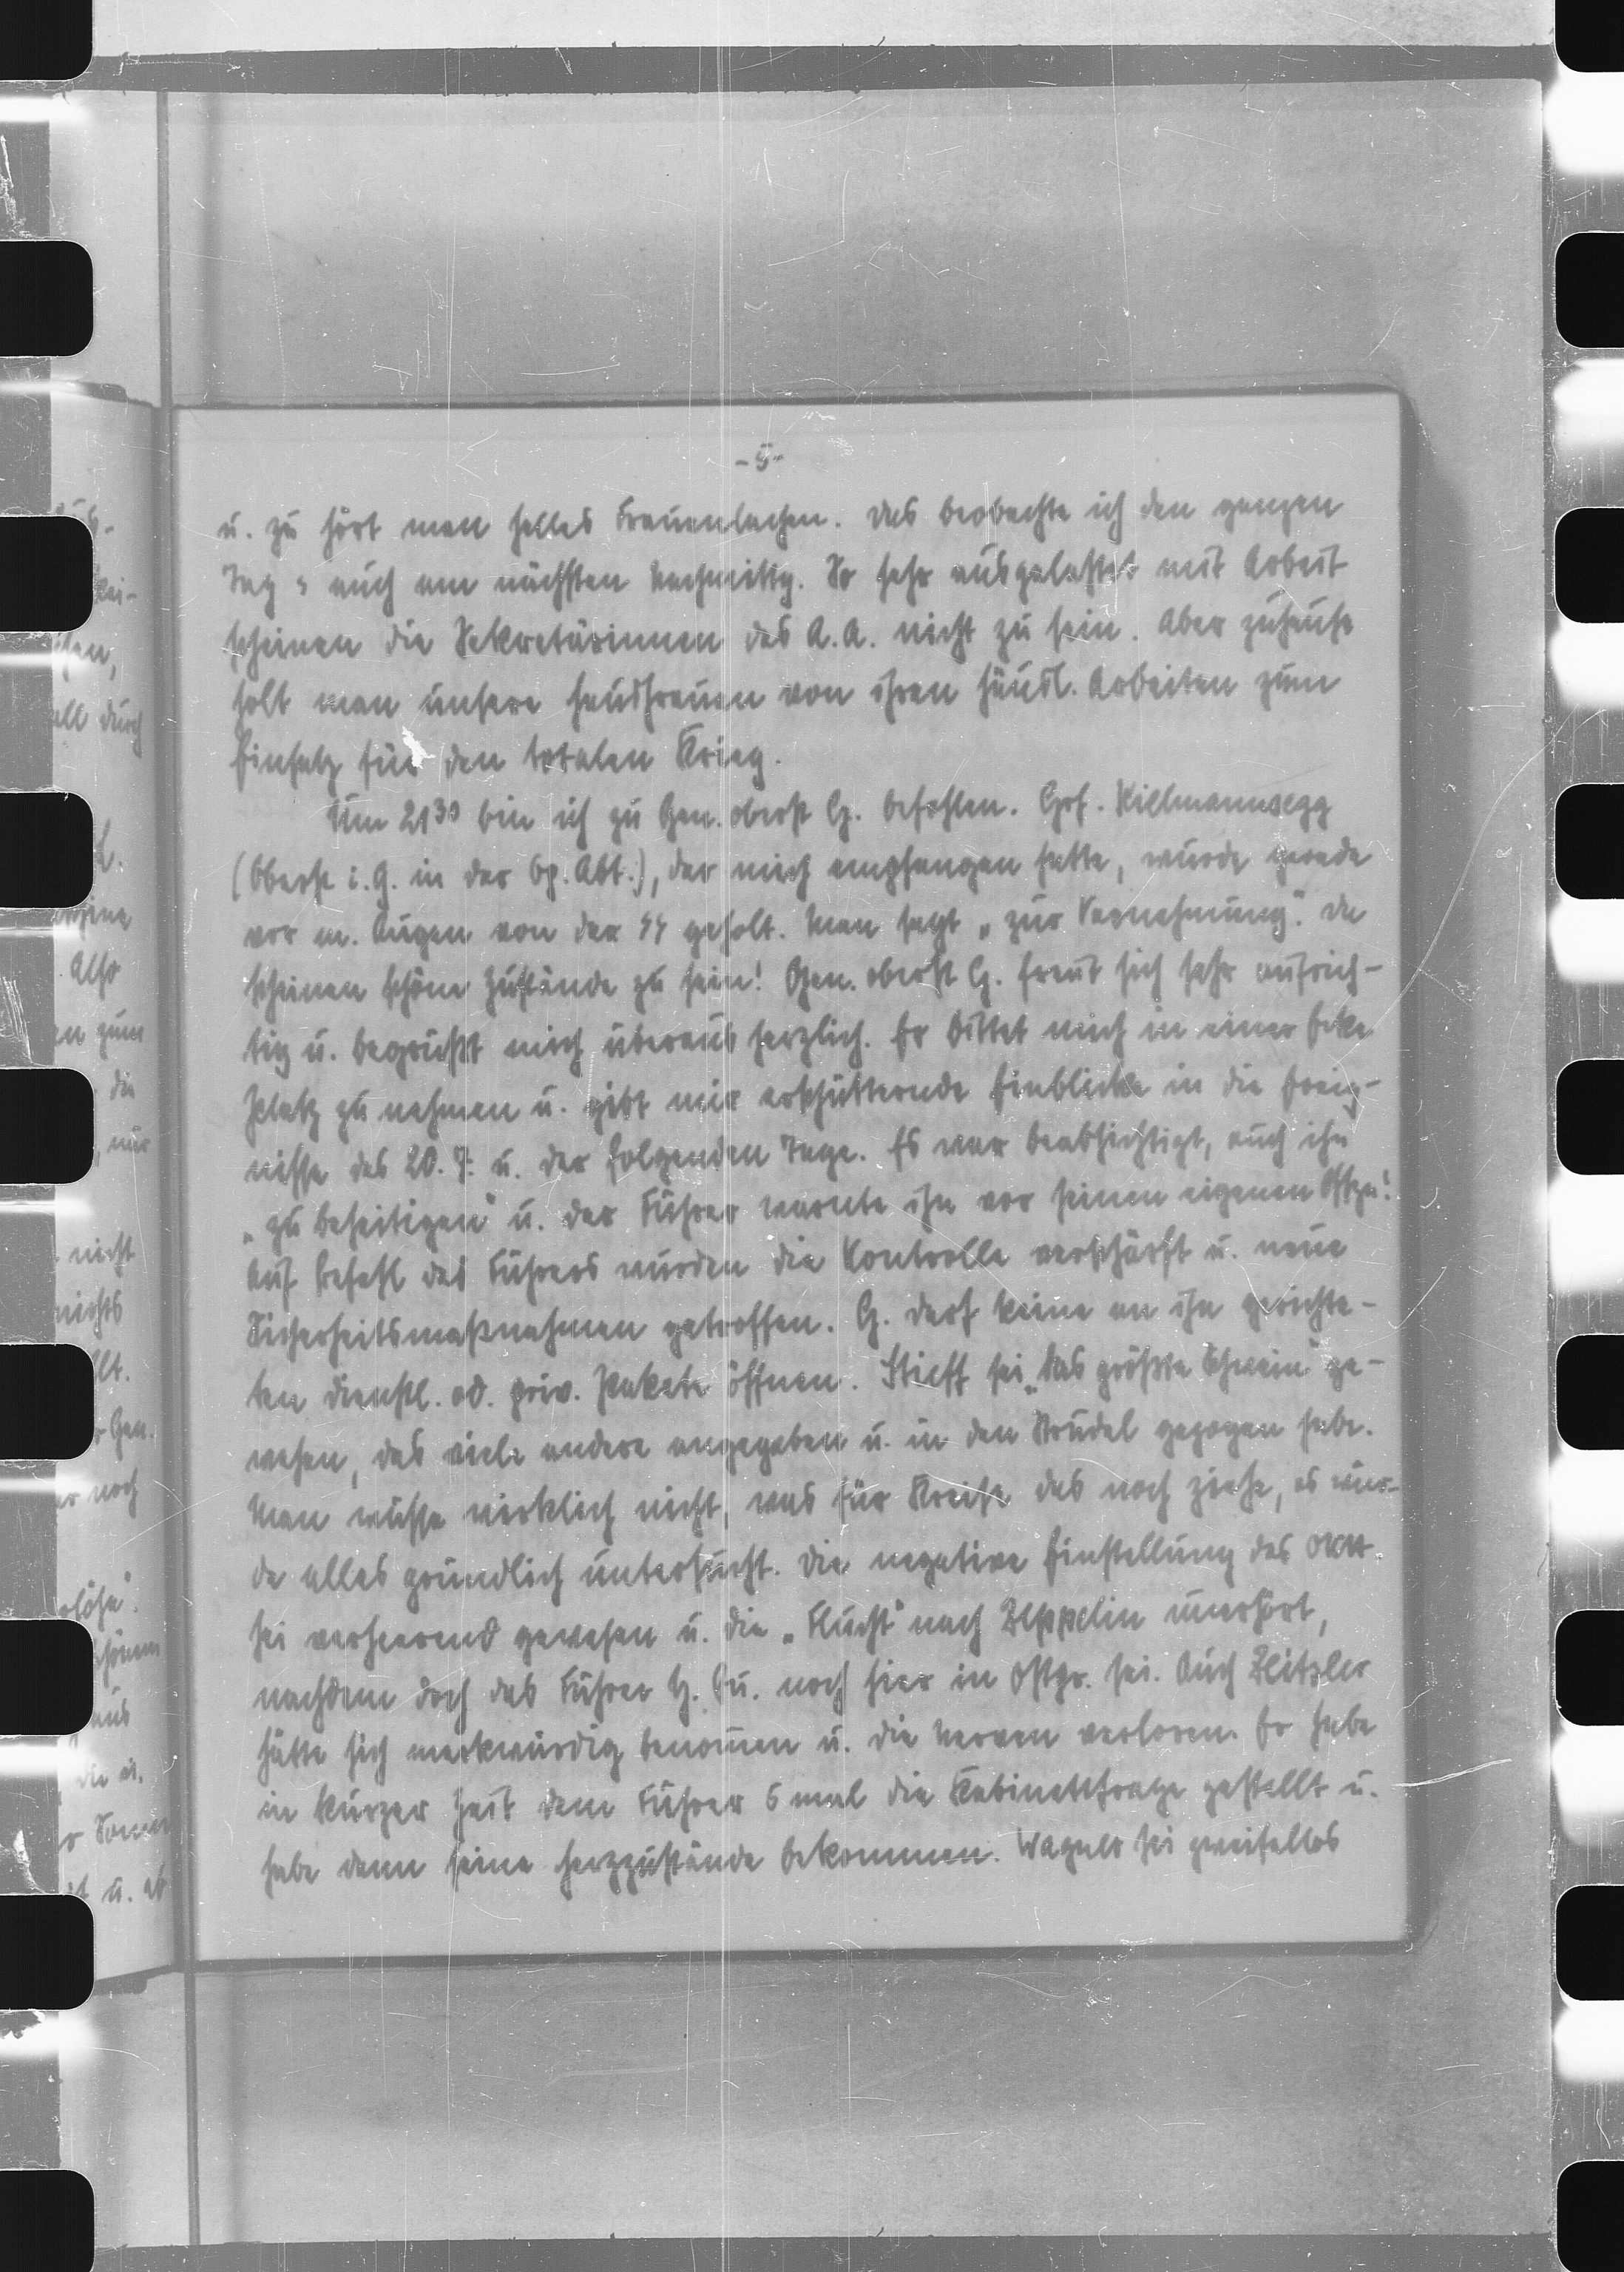 -5-
u. zu hört man helles Frauenlachen. Das beobachte ich den ganzen
Tag u. auch am nächsten Nachmittg. So sehr ausgelastet mit Arbeit
scheinen die Sekretärinnen des A.A. nicht zu sein. Aber zuhause
holt man unsere Hausfrauen von ihren häusl. Arbeiten zum
Einsatz für den totalen Krieg.
Um 21³⁰ bin ich zu Gen. oberst G. befohlen. Grf. Kielmannsegg
(Oberst i.G. in der Op. Abt.), der mich empfangen hatte, wurde gerade
vor m. Augen von der SS geholt. Man sagt „zur Vernehmung". Da
scheinen schöne Zustände zu sein! Gen. oberst G. freut sich sehr aufrich-
tig u. begrüßt mich überaus herzlich. Er bittet mich in einer Ecke
Platz zu nehmen u. gibt mir erschütternde Einblicke in die Ereig-
nisse des 20. 7. u. der folgenden Tage. Es war beabsichtigt, auch ihn
„zu beseitigen" u. der Führer warnte ihn vor seinen eigenen Offzn!
Auf Befehl des Führers wurden die Kontrolle verschärft u. neue
Sicherheitsmaßnahmen getroffen. G. darf keine an ihn gerichte-
ten dienstl. od. priv. Pakete öffnen. Stieff sei „das größte Schwein" ge-
wesen, das viele andere angegeben u. in den Strudel gezogen habe.
Man wüsste wirklich nicht, was für Kreise das noch ziehe, es wür-
de alles gründlich untersucht. Die negative Einstellung des OKH.
sei verheerend gewesen u. die „Flucht" nach Zeppelin unerhört,
nachdem doch das Führer H. Qu. noch hier in Ostpr. sei. Auch Zeitzler
hätte sich merkwürdig benommen u. die Nerven verloren. Er habe
in kurzer Zeit dem Führer 5 mal die Kabinettfrage gestellt u.
habe dann seine Herzzustände bekommen. Wagner sei zweifellos